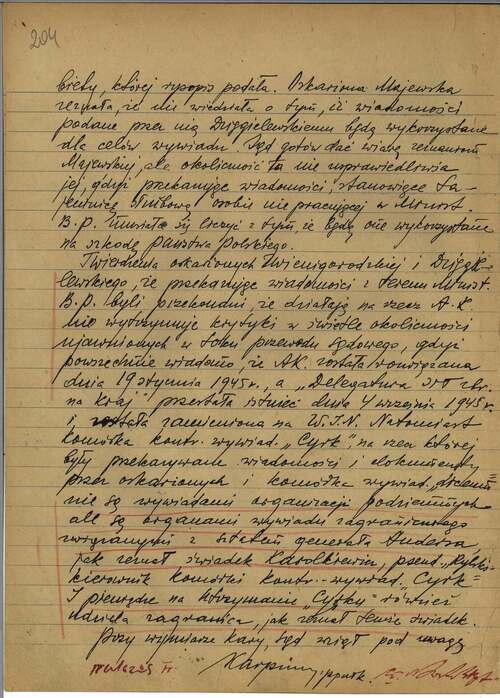 204
biety, której rysopis podała. Oskarżona Majewska
zeznała, że nie wiedziała o tym, iż wiadomości
podane przez nią Dzięgielewskiemu będą wykorzystane
dla celów wywiadu. Sąd gotów dać wiarę zeznaniom
Majewskiej, ale okoliczność ta nie usprawiedliwia
jej, gdyż przekazując wiadomości, stanowiące ta-
jemnicę służbową osobie nie pracującej w Minist.
B.P. musiała się liczyć z tym, że będą one wykorzystane
na szkodę państwa Polskiego.
Twierdzenia oskarżonych Zwienigorodzkiej i Dzięgie-
lewskiego, że przekazując wiadomości z terenu Minist.
B.P. byli przekonani, że działają na rzecz A.K.
nie wytrzymuje krytyki w świetle okoliczności
ujawnionych w toku przewodu sądowego, gdyż
powszechnie wiadomo, że AK. została rozwiązana
dnia 19 stycznia 1945 r., a „Delegatura Sił Zbr.
na Kraj" przestała istnieć dnia 4 września 1945 r.
i została zamieniona na W.I.N. Natomiast
komórka kontr. wywiad. „Cyrk" na rzecz której
były przekazywane wiadomości i dokumenty
przez oskarżonych i komórka wywiad.
nie są wywiadami organizacji podziemnych
ale są organami wywiadu zagranicznego
związanymi z sztabem generała Andersa
jak zeznał świadek Karolkiewicz, pseud.
kierownik komórki kontr.-wywiad. Cyrk"
I pieniądze na utrzymanie „Cyrku" również
nadeszła zagranica, jak zeznał tenże świadek.
Przy wymiarze kary, Sąd wziął pod uwagę
ppułk.